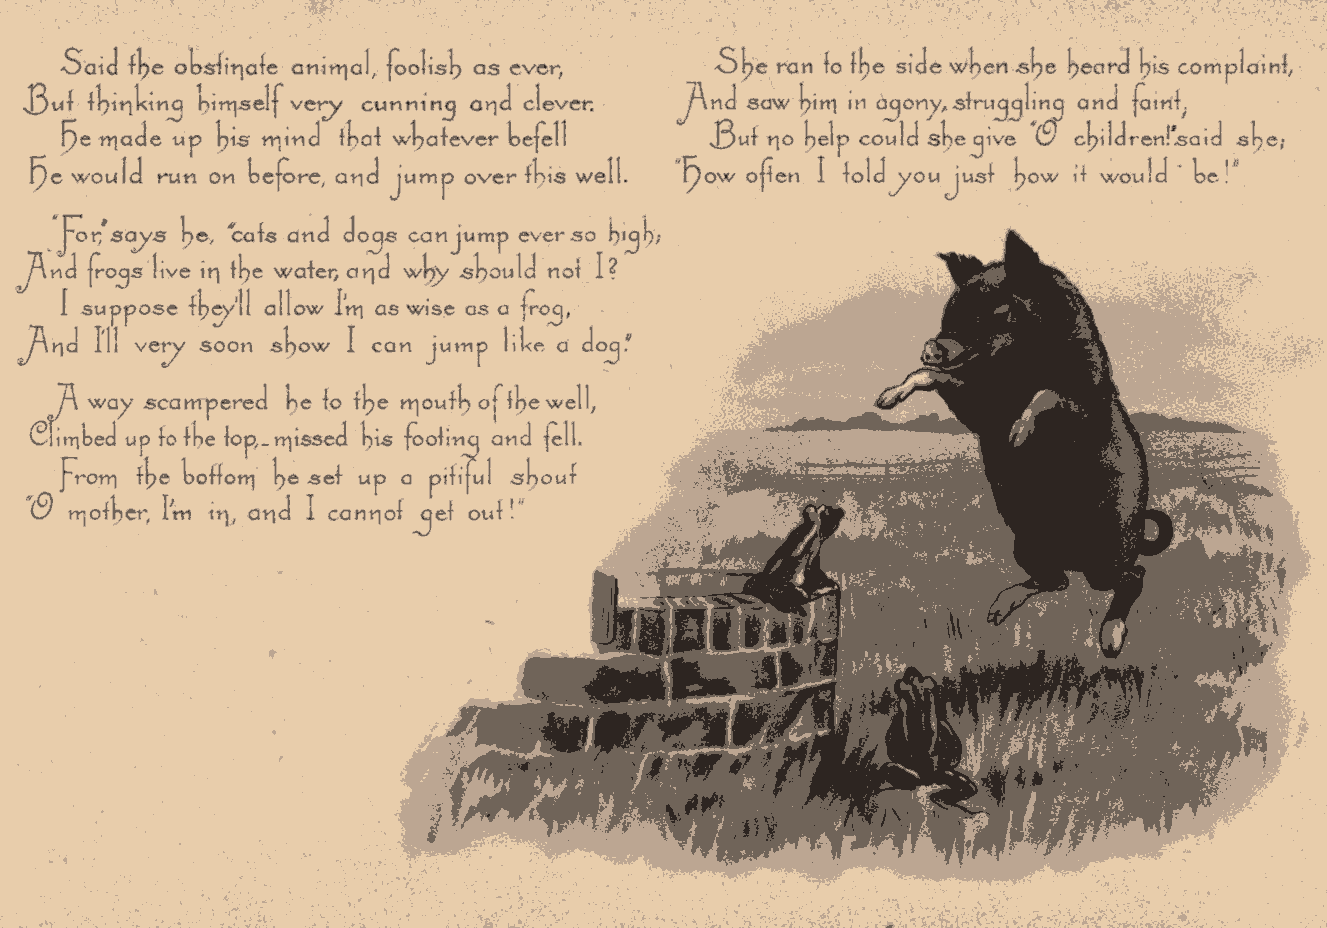 Said the obstinate animal, foolish as ever,
But thinking himself very cunning and clever.
He made up his mind that whatever befell
He would run on before, and jump over this well.
"For," says he, "cats and dogs can jump ever so high;
And frogs live in the water, and why should not I?
I suppose they'll allow I'm as wise as a frog,
And I'll very soon show I can jump like a dog."
A way scampered he to the mouth of the well,
Climbed up to the top,-missed his footing and fell.
From the bottom he set up a pitiful shout
"O mother, I'm in, and I cannot get out!"
She ran to the side when she heard his complaint,
And saw him in agony, struggling and faint;
But no help could she give "O children!" said she;
"How often I told you just how it would be!"